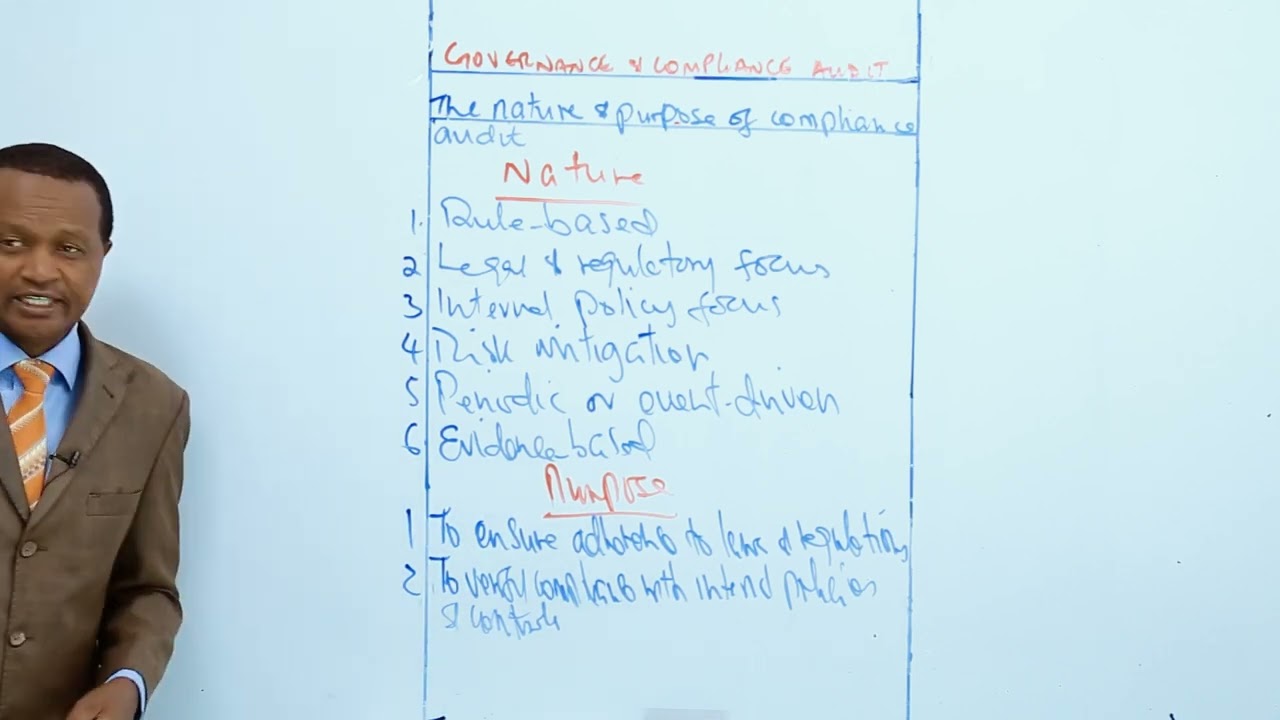 GOVERNANCE & COMPLIANCE AUDIT
The nature & purpose of compliance
audit
Nature
1. Rule-based
2 Legal & regulatory focus
3 Internal policy focus
4 Risk mitigation
5 Periodic or event-driven
6 Evidence-based
Purpose
1 To ensure adherence to laws & regulations
2 To verify compliance with internal policies
& controls